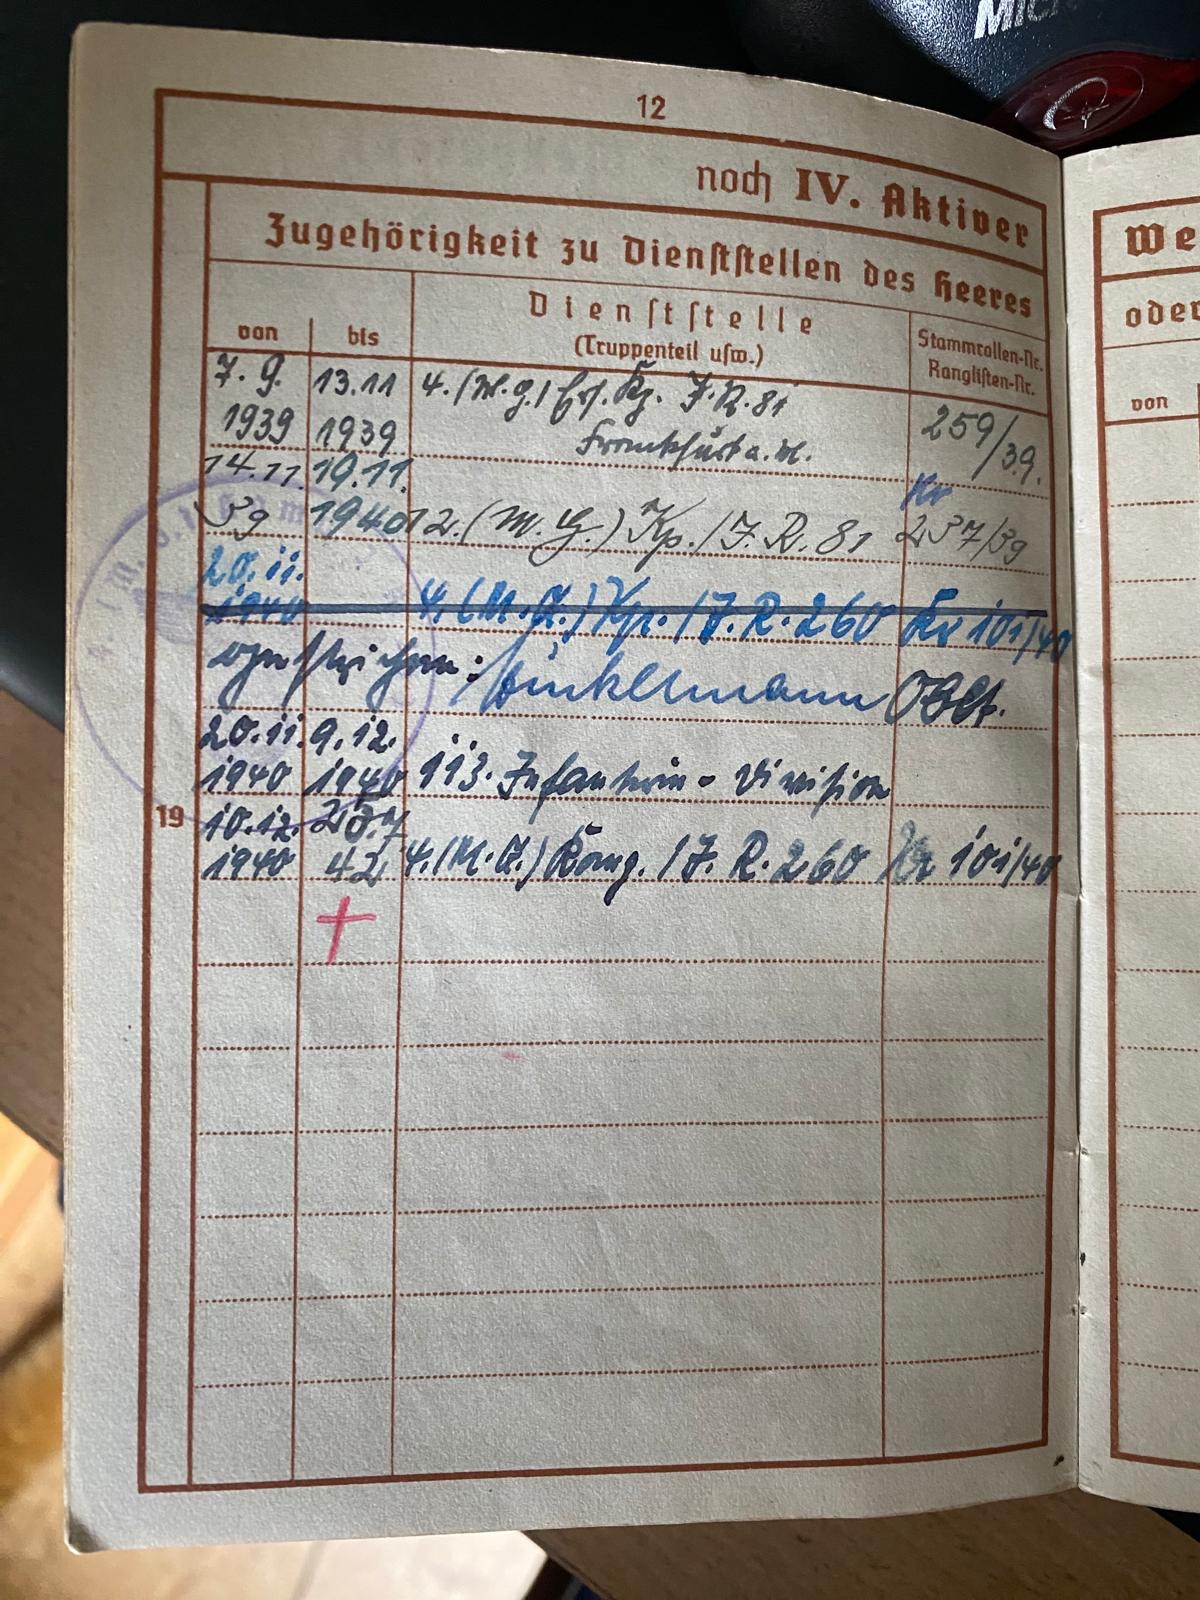 12
noch IV. Aktiver
Zugehörigkeit zu Dienststellen des Heeres
von
bis
Dienststelle
(Truppenteil usw.)
Stammrollen-Nr.
Ranglisten-Nr.
7. 9. 13.11 4. (M.G.) Ers. Kp. J.R. 81
1939 1939 Frankfurt a. M. 259/39.
14.11. 19.11. Kr
39 1940 12. (M.G.) Kp. / J.R. 81 237/39
20.11.
1940 4. (M.G.) Kp. / J.R. 260 Kr 101/40
gestrichen: Winkelmann Oblt.
20.11. 9.12.
1940 1940 113. Infanterie-Division
19
10.12. 28.7
1940 42 4. (M.G.) Komp. / J.R. 260 Kr 101/40
We
oder
von